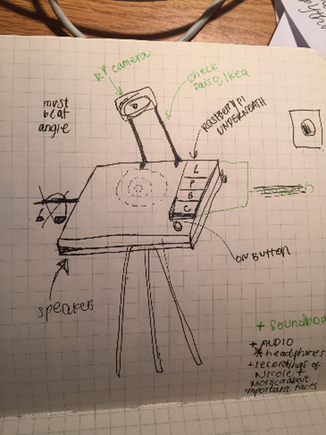 RP camera
check
Daiso/Ikea
must
be at
angle
Raspberry pi
UNDERNEATH
L
P
S
C
on BUTTON
speaker
+ soundboa
+ AUDIO
* headphones
+ recordings of
Nicole +
important facts